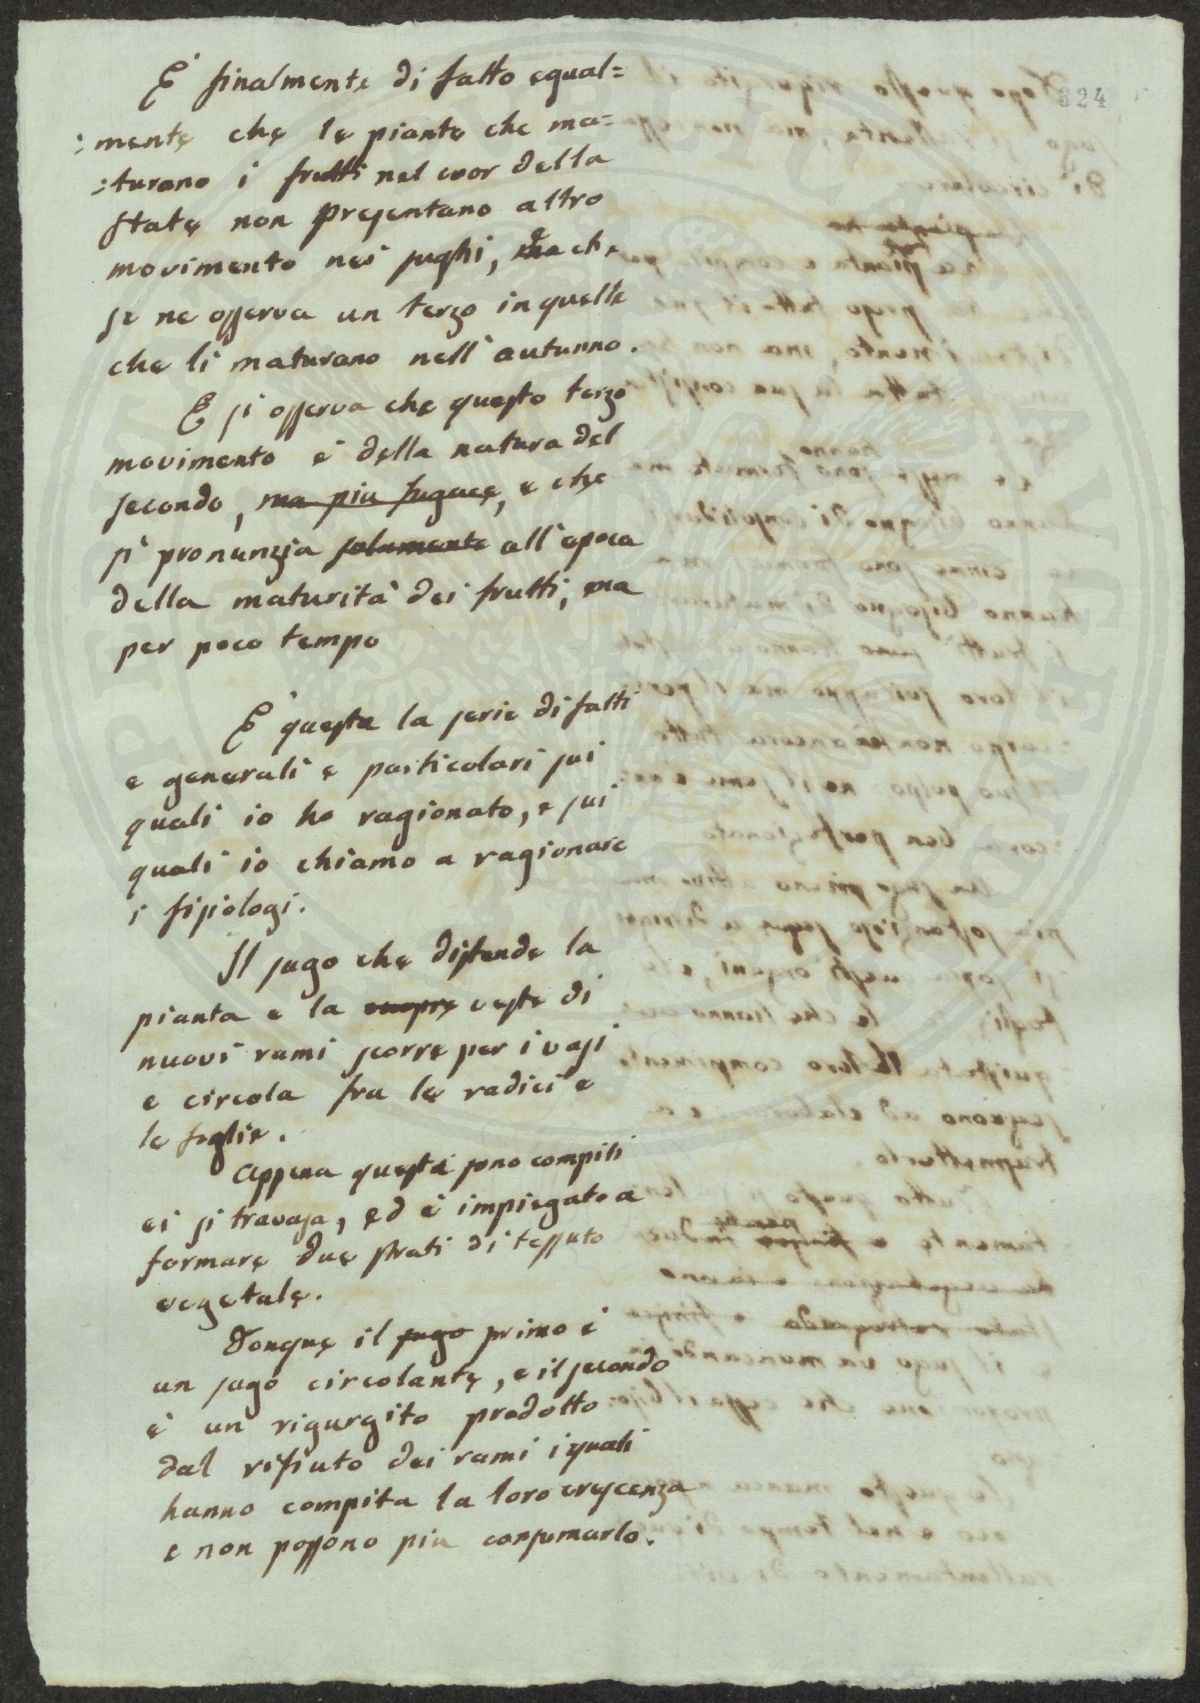 824
E' finalmente di fatto egual=
:mente che le piante che ma=
:turano i frutti nel cuor della
state non presentano altro
movimento nei sughi, e che
se ne osserva un terzo in quelle
che li maturano nell'autunno.
E si osserva che questo terzo
movimento è della natura del
secondo, ma piu fugace, e che
si pronunzia solamente all'epoca
della maturità dei frutti, ma
per poco tempo
E' questa la serie di fatti
e generali e particolari sui
quali io ho ragionato, e sui
quali io chiamo a ragionare
i fisiologi.
Il sugo che distende la
pianta e la cuopre veste di
nuovi rami scorre per i vasi
e circola fra le radici e
le foglie.
Appena questi sono compiti
ei si travasa, ed è impiegato a
formare due strati di tessuto
vegetale.
Donque il sugo primo è
un sugo circolante, e il secondo
è un rigurgito prodotto
dal rifiuto dei rami i quali
hanno compita la loro crescenza
e non possono piu consumarlo.